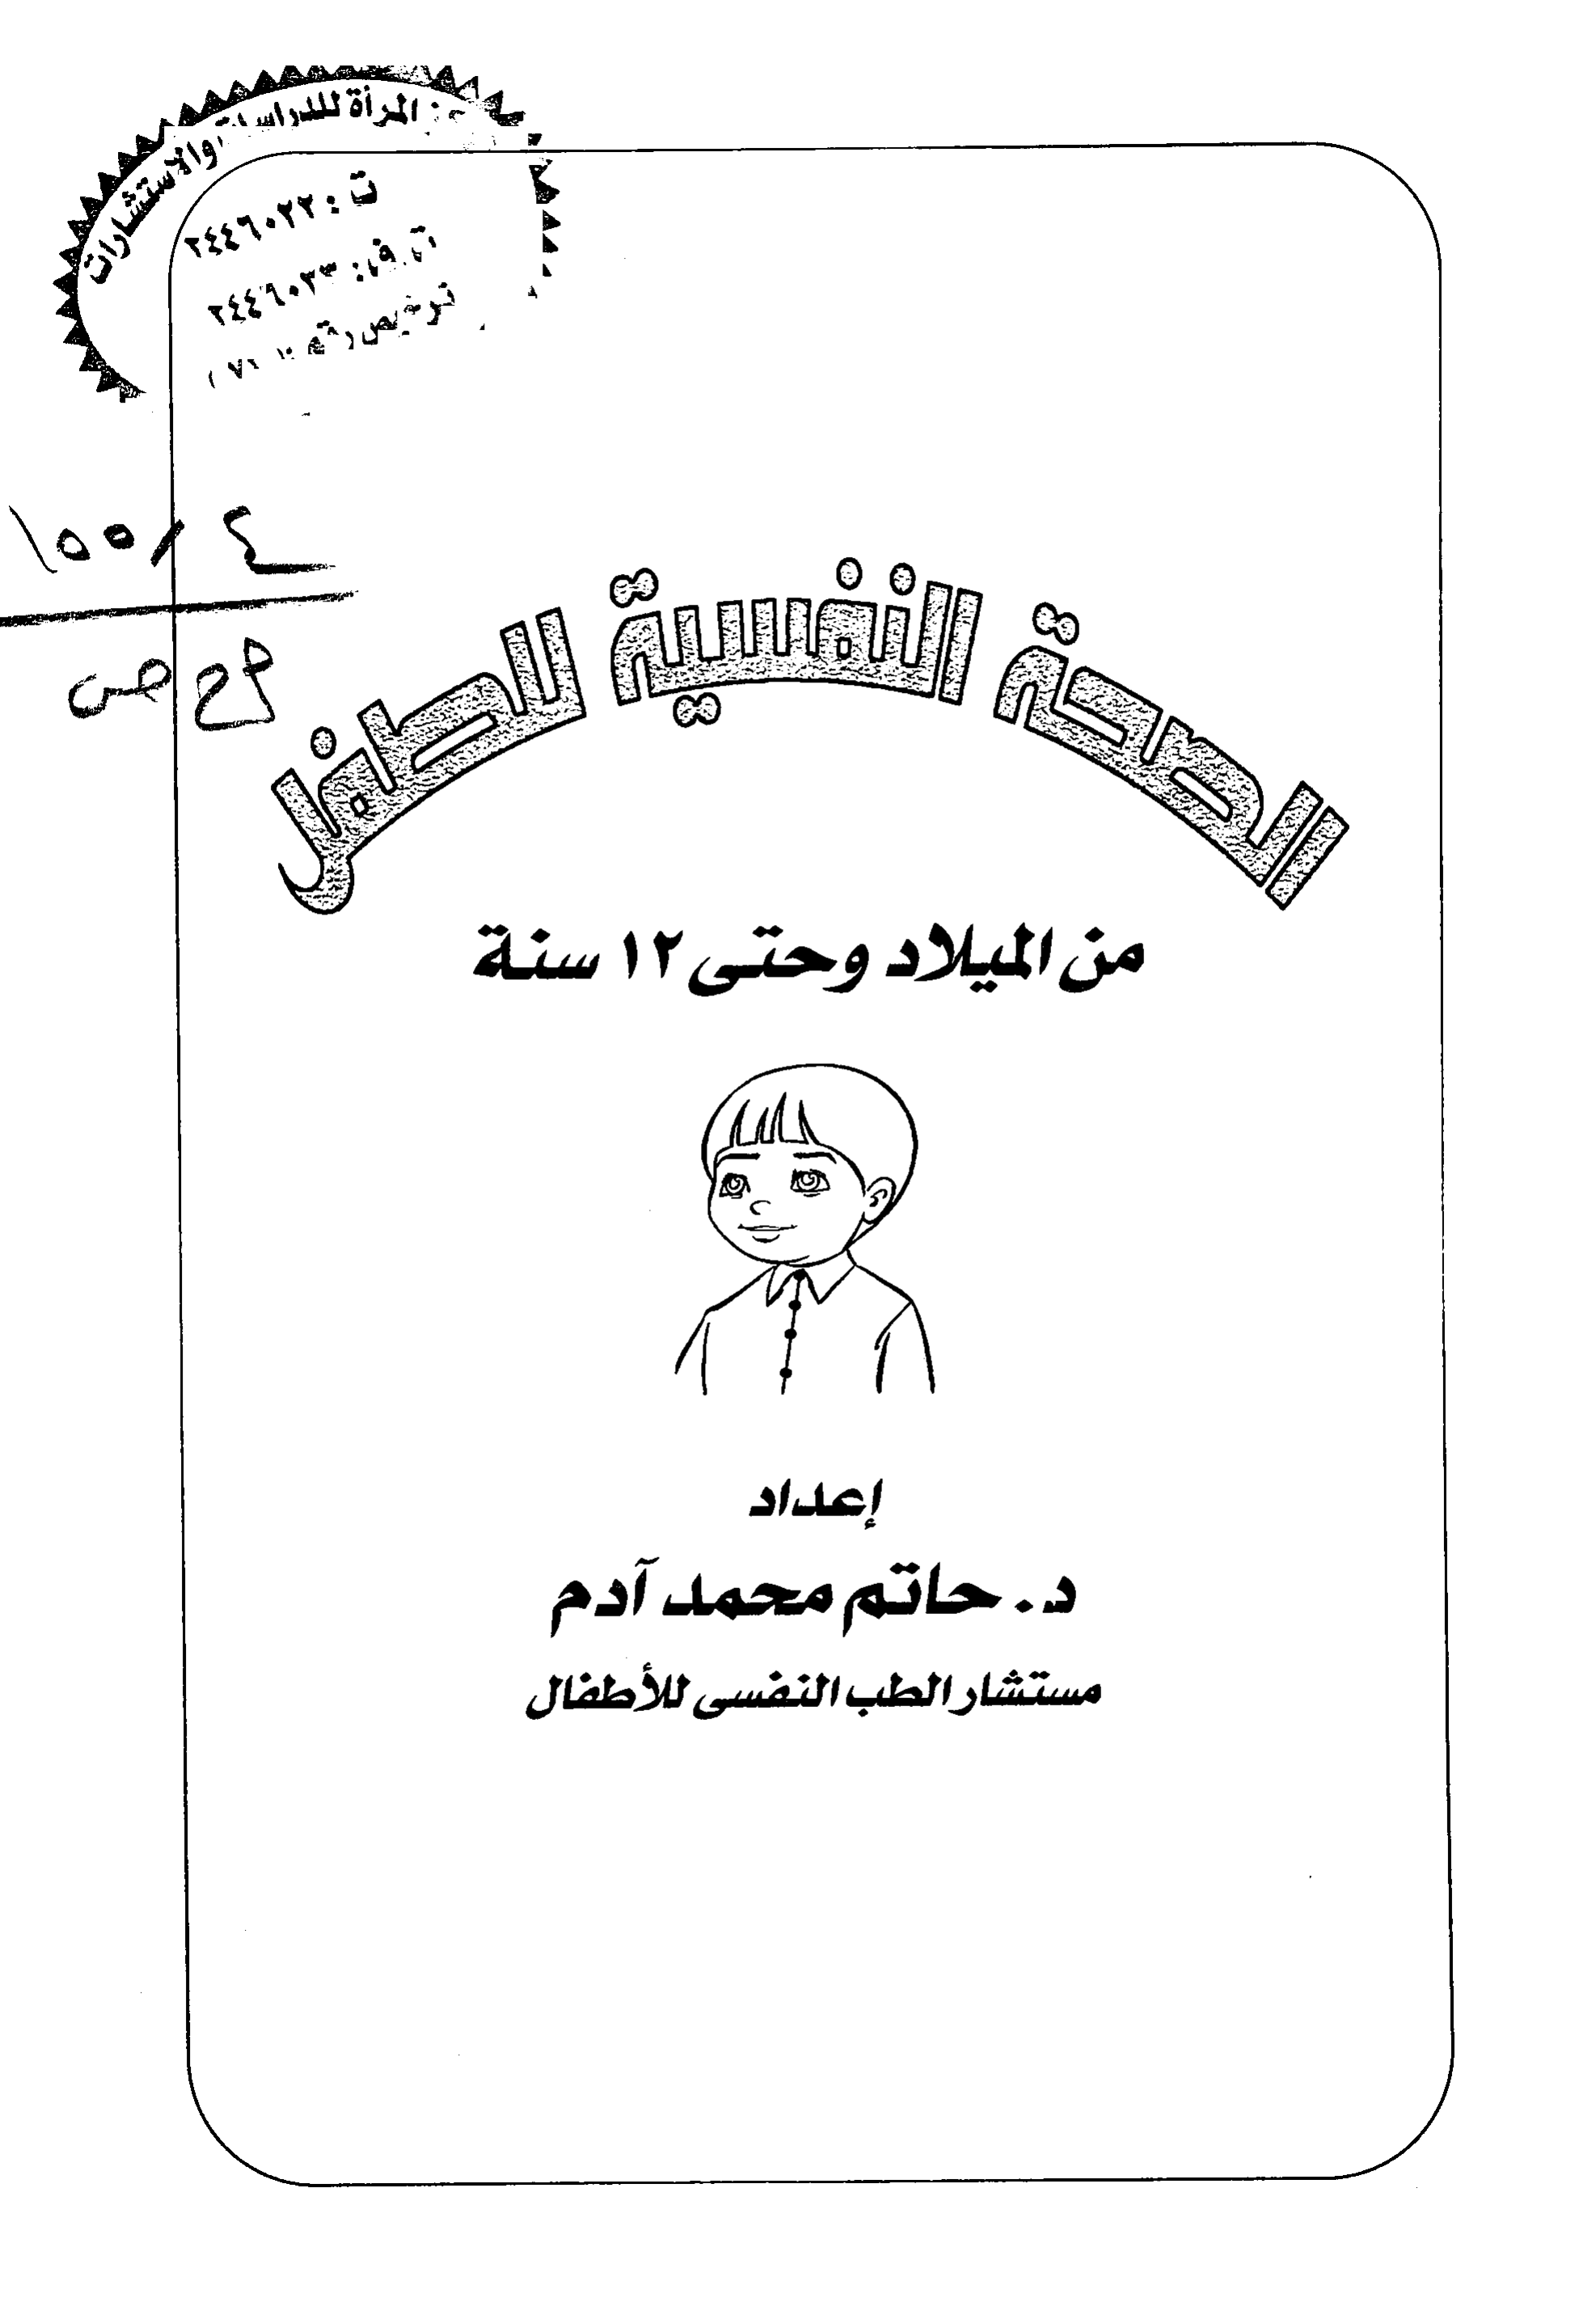 المرأة للدراسات والاستشارات
ت : ٢٤٤٦٠٢٢
٢٤٤٦٠٢٣
ترخيص رقم
١٥٥/٤
الصحة النفسية للطفل
من الميلاد وحتى ١٢ سنة
إعداد
د. حاتم محمد آدم
مستشار الطب النفسى للأطفال